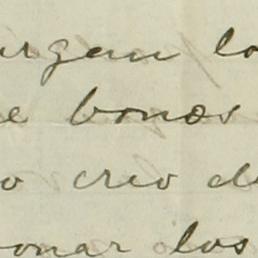 urgan lo
e bonos
o creo de
onar los